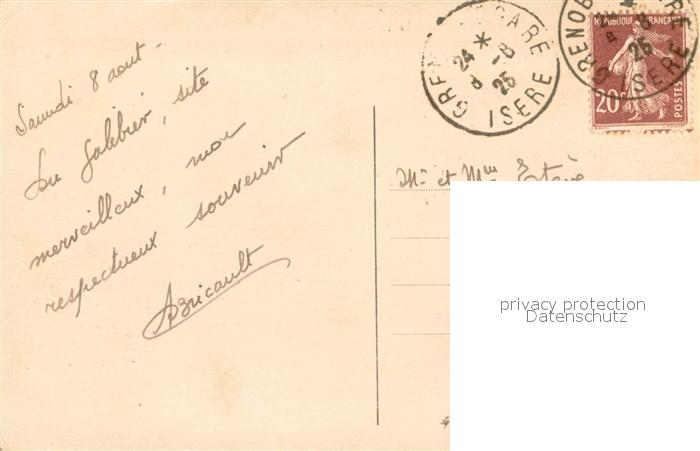 Samedi 8 aout.
Du Galibier, site
merveilleux, mon
respectueux souvenir
ABricault
GRENOBLE GARE
24 *
8 - 8
25
ISERE
REPUBLIQUE FRANÇAISE
20
POSTES
Mr et Mme Estève
privacy protection
Datenschutz